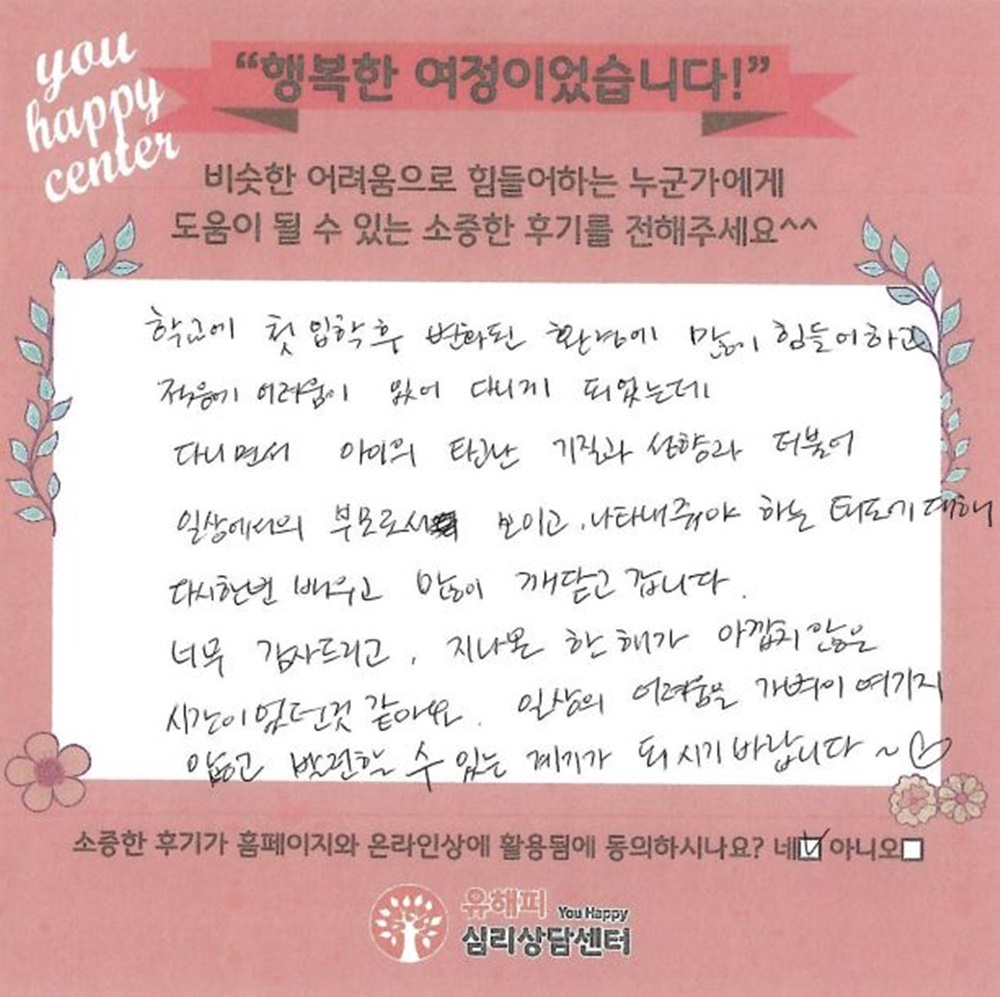 you
happy
center
“행복한 여정이었습니다!”
비슷한 어려움으로 힘들어하는 누군가에게
도움이 될 수 있는 소중한 후기를 전해주세요^^
학교에 첫 입학 후 변화된 환경에 많이 힘들어하고
적응에 어려움이 있어 다니게 되었는데
다니면서 아이의 타고난 기질과 성향과 더불어
일상에서의 부모로서 보이고, 나타내줘야 하는 태도에 대해
다시한번 배우고 많이 깨닫고 갑니다.
너무 감사드리고, 지나온 한 해가 아깝지 않은
시간이었던것 같아요. 일상의 어려움을 가벼이 여기지
않고 발견할 수 있는 계기가 되시기 바랍니다~♡
소중한 후기가 홈페이지와 온라인상에 활용됨에 동의하시나요? 네☑ 아니오☐
유해피 You Happy
심리상담센터